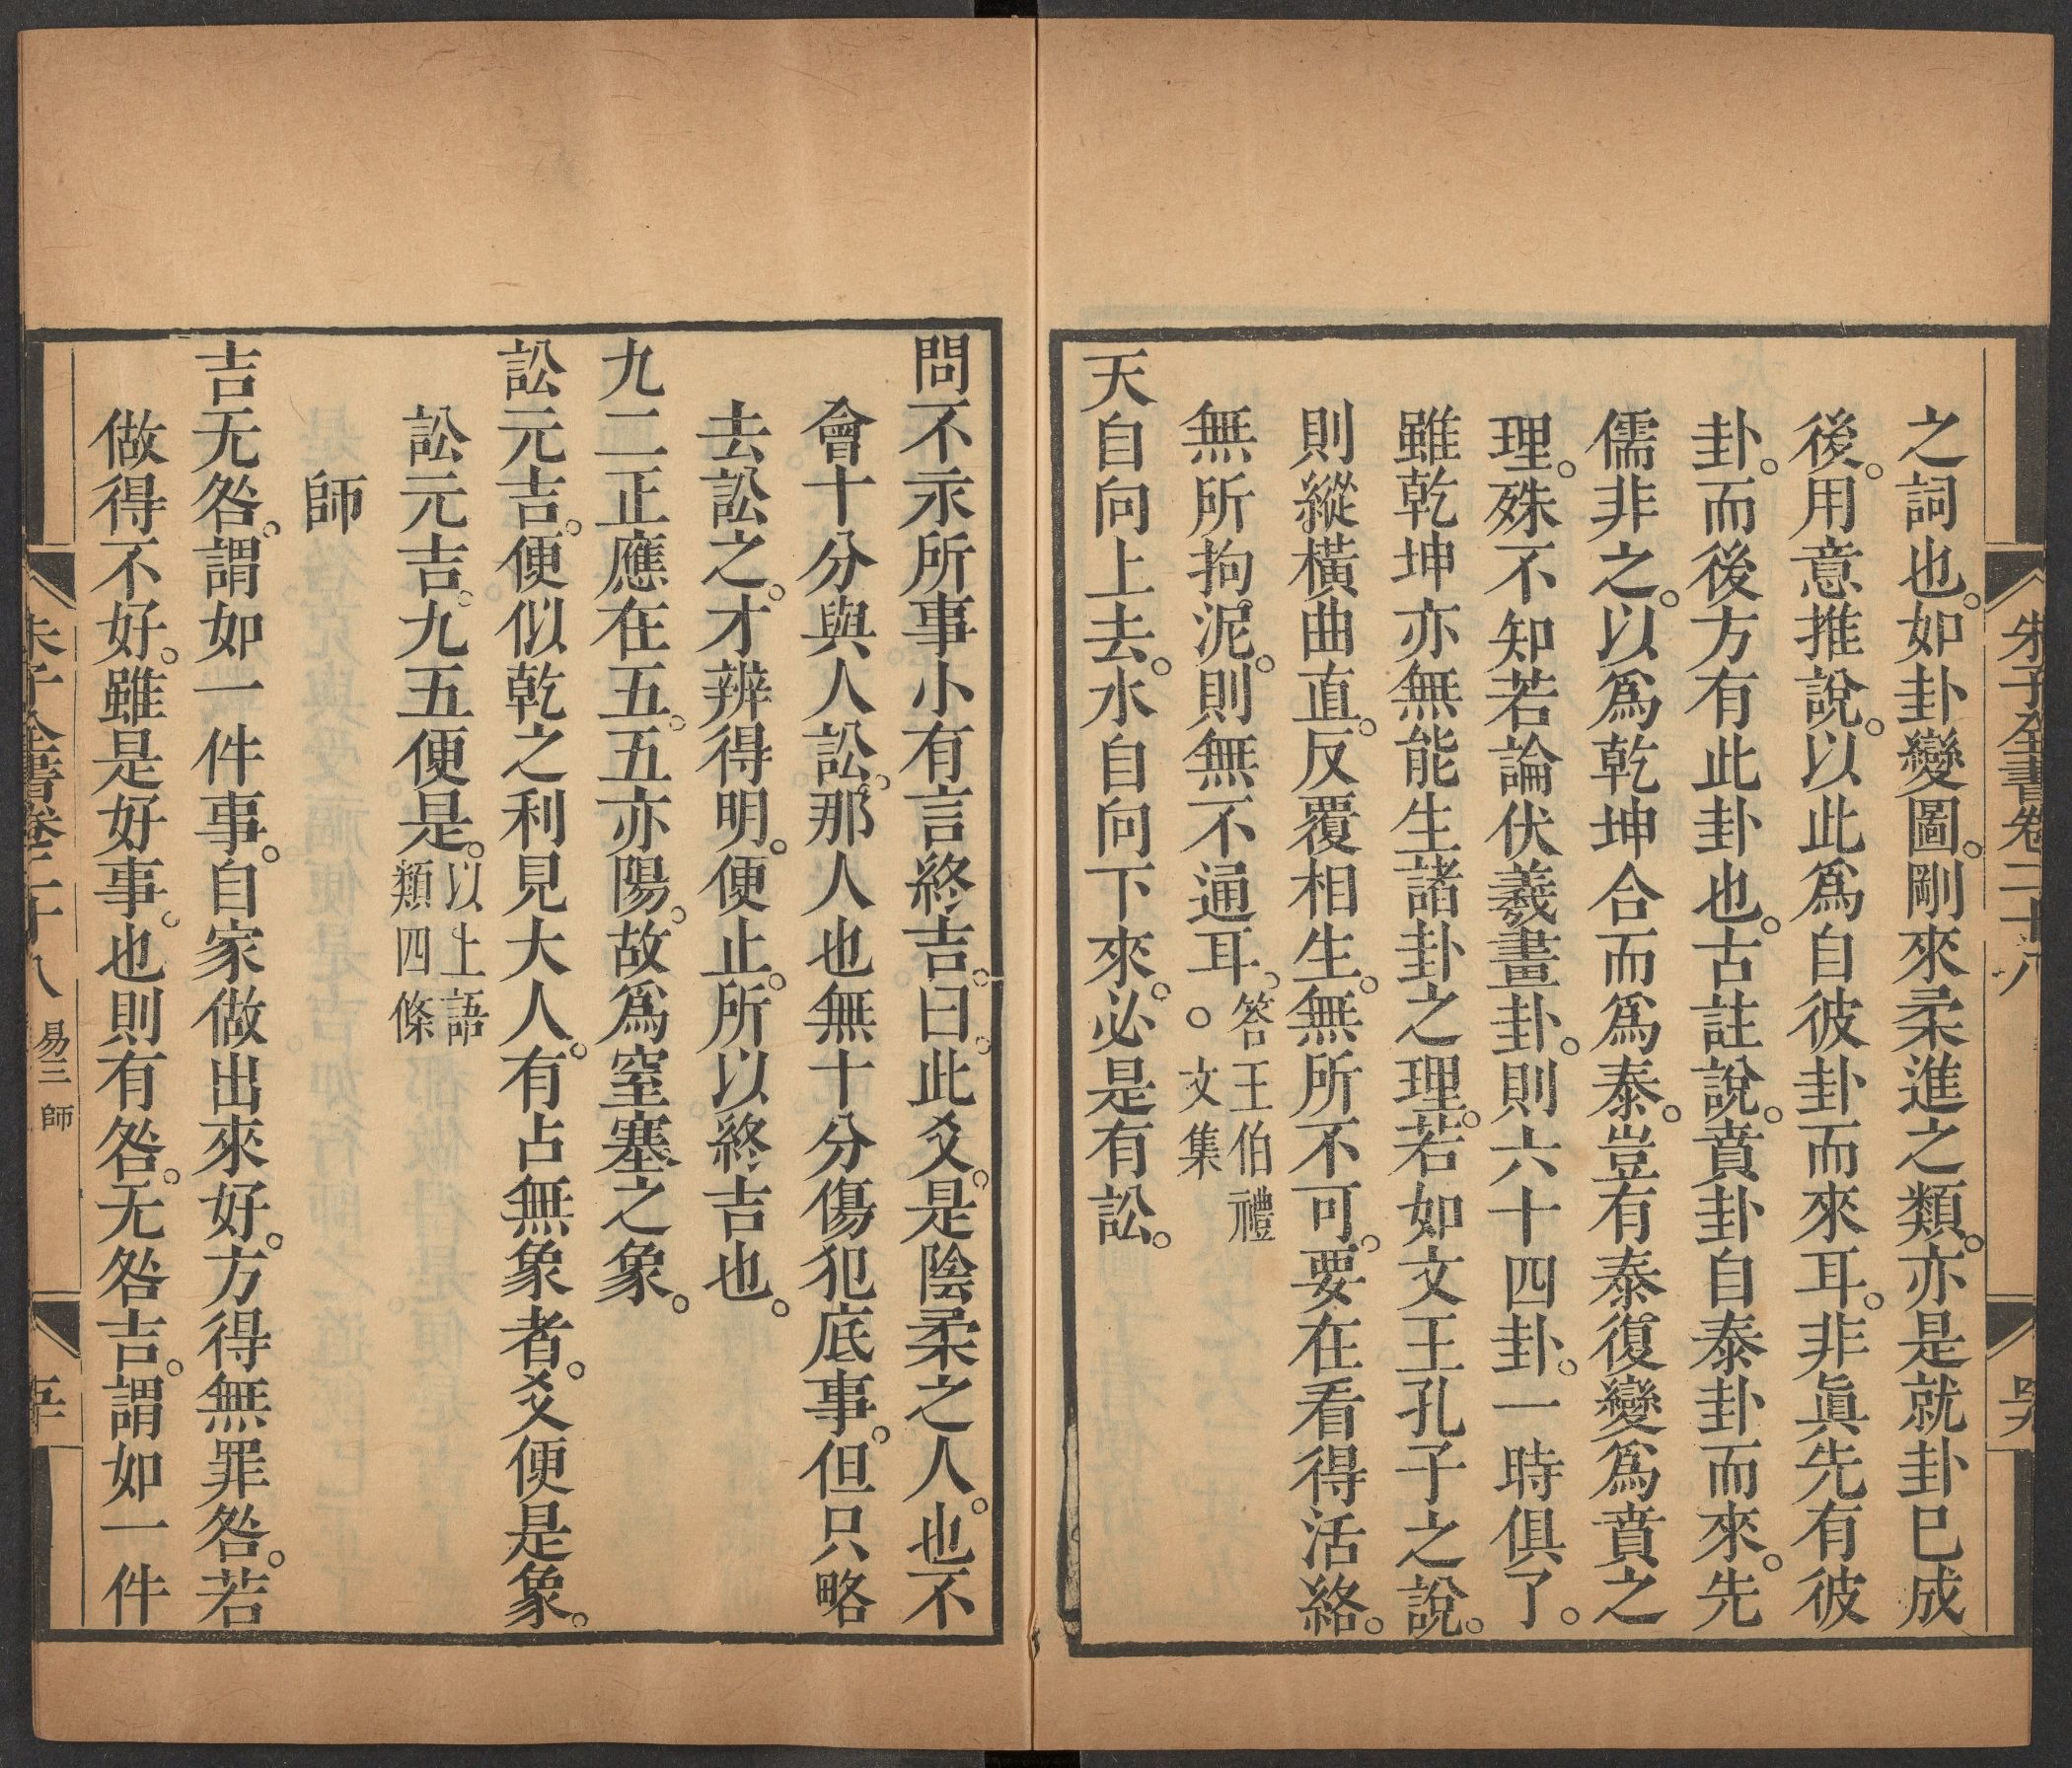 朱子全書卷二十八
之詞也。如卦變圖。剛來柔進之類。亦是就卦已成
後。用意推說。以此爲自彼卦而來耳。非眞先有彼
卦。而後方有此卦也。古註說。賁卦自泰卦而來。先
儒非之。以爲乾坤合而爲泰。豈有泰復變爲賁之
理。殊不知若論伏羲畫卦。則六十四卦。一時俱了。
雖乾坤亦無能生諸卦之理。若如文王孔子之說。
則縱橫曲直。反覆相生。無所不可。要在看得活絡。
無所拘泥。則無不通耳。答王伯禮○文集
天自向上去。水自向下來。必是有訟。
問不永所事小有言終吉。曰。此爻。是陰柔之人。也不
會十分與人訟。那人也無十分傷犯底事。但只略
去訟之。才辨得明。便止。所以終吉也。
九二正應在五。五亦陽。故爲窒塞之象。
訟元吉。便似乾之利見大人。有占無象者。爻便是象。
訟元吉。九五便是。以上語類四條
師
吉无咎。謂如一件事。自家做出來好。方得無罪咎。若
做得不好。雖是好事。也則有咎。无咎吉。謂如一件
朱子全書卷二十八 易三 師